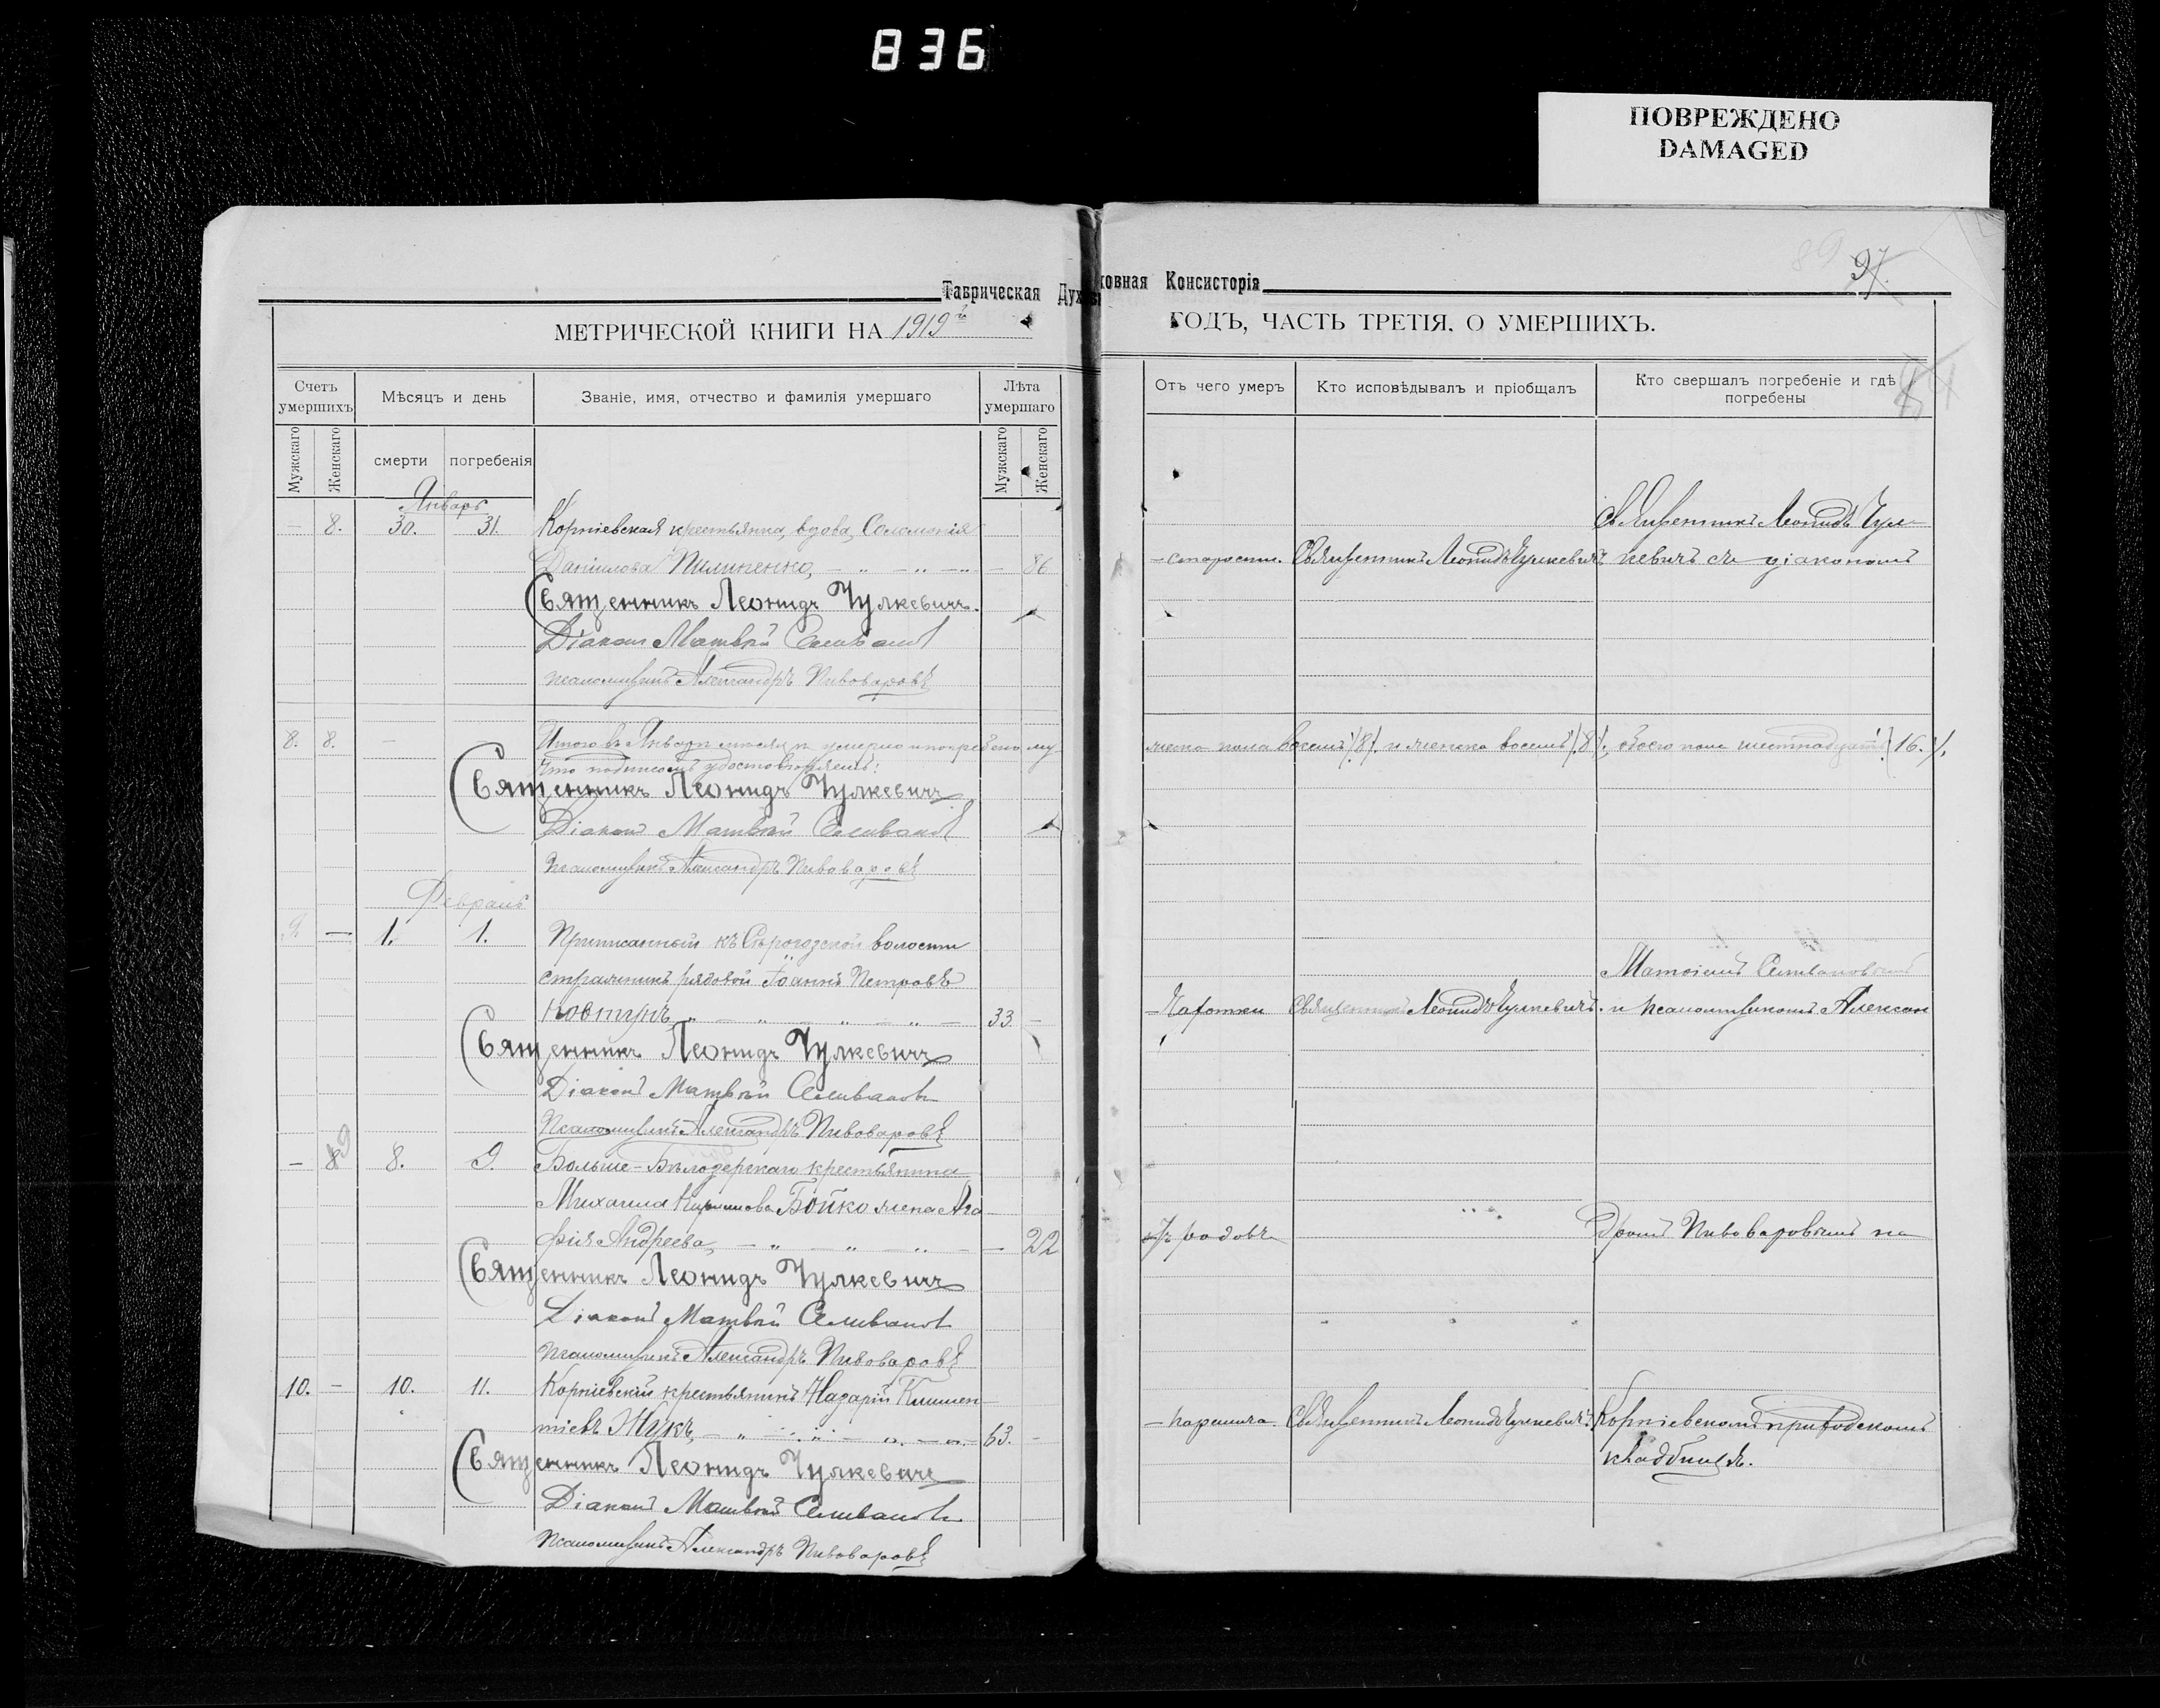 836
ПОВРЕЖДЕНО
DAMAGED
89 97
Таврическая Духовная Консисторія
МЕТРИЧЕСКОЙ КНИГИ НА 1919й ГОДЪ, ЧАСТЬ ТРЕТІЯ, О УМЕРШИХЪ.
Счетъ умершихъ
Мѣсяцъ и день
Званіе, имя, отчество и фамилія умершаго
Лѣта умершаго
Отъ чего умеръ
Кто исповѣдывалъ и пріобщалъ
Кто свершалъ погребеніе и гдѣ погребены
Мужскаго Женскаго смерти погребенія Мужскаго Женскаго
Январь
— 8. 30. 31. Корніевская крестьянка, вдова, Соломонія
Священникъ Леонидъ Чул-
Даніилова Пилипенко, — 86 — старости. Священникъ Леонидъ Чулкевичъ кевичъ съ діакономъ
Священникъ Леонидъ Чулкевичъ.
Діаконъ Матвѣй Селивановъ
Псаломщикъ Александръ Пивоваровъ
8. 8. — — Итого въ Январѣ мѣсяцѣ умерло и погребено му-
жеска пола восемь /8/. и женска восемь /8/., обоего пола шестнадцать /16./.
Что подписомъ удостовѣряемъ:
Священникъ Леонидъ Чулкевичъ
Діаконъ Матвѣй Селивановъ
Псаломщикъ Александръ Пивоваровъ
Февраль
9. — 1. 1. Приписанный къ Сѣрогозской волости
стражникъ рядовой Іоаннъ Петровъ
Матѳіемъ Селивановымъ
Ковтунъ, — 33. — — Чахотки Священникъ Леонидъ Чулкевичъ. и псаломщикомъ Алексан
Священникъ Леонидъ Чулкевичъ
Діаконъ Матвѣй Селивановъ
Псаломщикъ Александръ Пивоваровъ
— 9 8. 9. Больше-Бѣлозерскаго крестьянина
Михаила Бойко жена Ага
фія Андреева, — 22 родовъ дромъ Пивоваровымъ на
Священникъ Леонидъ Чулкевичъ
Діаконъ Матвѣй Селивановъ
Псаломщикъ Александръ Пивоваровъ
10. — 10. 11. Корніевскій крестьянинъ Назарій Климен
тіевъ Жукъ, — 63. — — паралича Священникъ Леонидъ Чулкевичъ. Корніевскомъ приходскомъ
кладбищѣ.
Священникъ Леонидъ Чулкевичъ
Діаконъ Матвѣй Селивановъ
Псаломщикъ Александръ Пивоваровъ